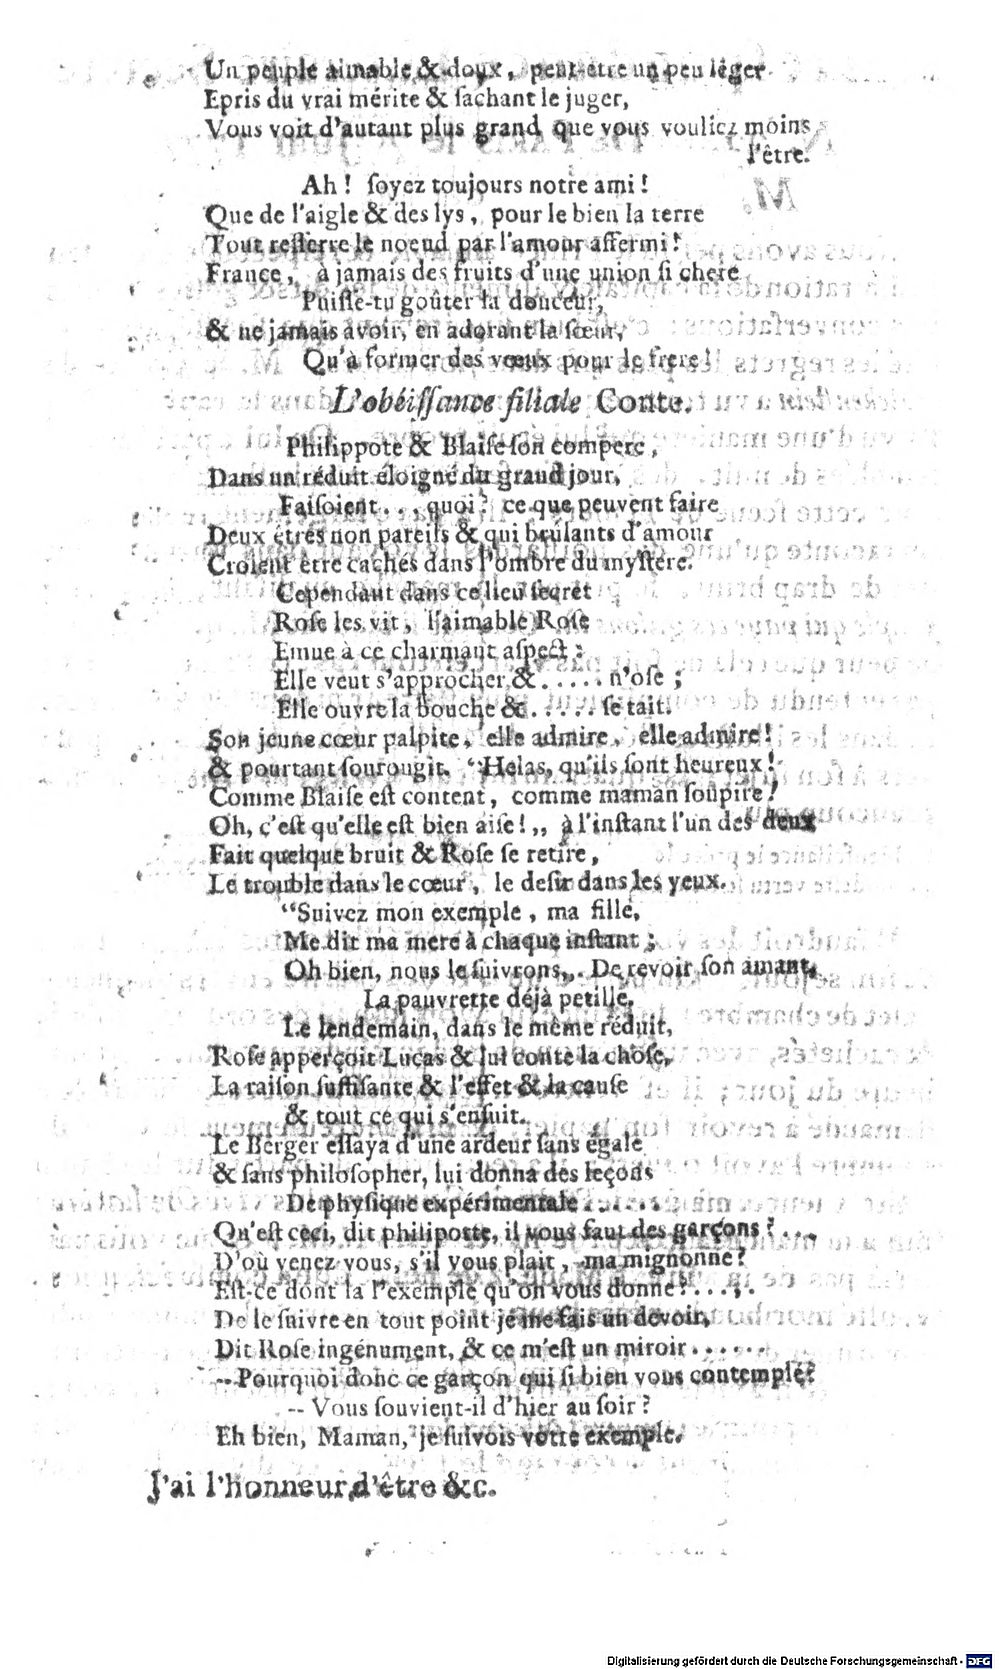 Un peuple aimable & doux, peut-être un peu léger
Epris du vrai mérite & ſachant le juger,
Vous voit d'autant plus grand que vous vouliez moins
l'être.
Ah! ſoyez toujours notre ami!
Que de l'aigle & des lys, pour le bien la terre
Tout reſſerre le noeud par l'amour affermi!
France, à jamais des fruits d'une union ſi chere
Puiſſe-tu goûter la douceur,
& ne jamais avoir, en adorant la ſœur,
Qu'à former des vœux pour le frere!
L'obéiſſance filiale Conte.
Philippote & Blaiſe ſon compere,
Dans un réduit éloigné du grand jour,
Faiſoient... quoi? ce que peuvent faire
Deux êtres non pareils & qui brulants d'amour
Croient être cachés dans l'ombre du myſtere.
Cependant dans ce lieu ſecret
Roſe les vit, l'aimable Roſe
Emue à ce charmant aſpect:
Elle veut s'approcher & ..... n'oſe;
Elle ouvre la bouche & ..... ſe tait.
Son jeune cœur palpite, elle admire, elle admire!
& pourtant ſourougit. "Helas, qu'ils ſont heureux!
Comme Blaiſe eſt content, comme maman ſoupire!
Oh, c'eſt qu'elle eſt bien aiſe!,, à l'inſtant l'un des deux
Fait quelque bruit & Roſe ſe retire,
Le trouble dans le cœur, le deſir dans les yeux.
"Suivez mon exemple, ma fille,
Me dit ma mere à chaque inſtant;
Oh bien, nous le ſuivrons,,. De revoir ſon amant,
La pauvrette déjà petille.
Le lendemain, dans le même réduit,
Roſe apperçoit Lucas & lui conte la choſe,
La raiſon ſuffiſante & l'effet & la cauſe
& tout ce qui s'enſuit.
Le Berger eſſaya d'une ardeur ſans égale
& ſans philoſopher, lui donna des leçons
De phyſique expérimentale ......
Qu'eſt ceci, dit philipotte, il vous faut des garçons?....
D'où venez vous, s'il vous plait, ma mignonne?
Eſt-ce dont la l'exemple qu'on vous donne?.....
De le ſuivre en tout point je me fais un devoir,
Dit Roſe ingénument, & ce m'eſt un miroir......
--Pourquoi donc ce garçon qui ſi bien vous contemple?
-- Vous ſouvient-il d'hier au ſoir?
Eh bien, Maman, je ſuivois votre exemple.
J'ai l'honneur d'être &c.
Digitalisierung gefördert durch die Deutsche Forschungsgemeinschaft - DFG